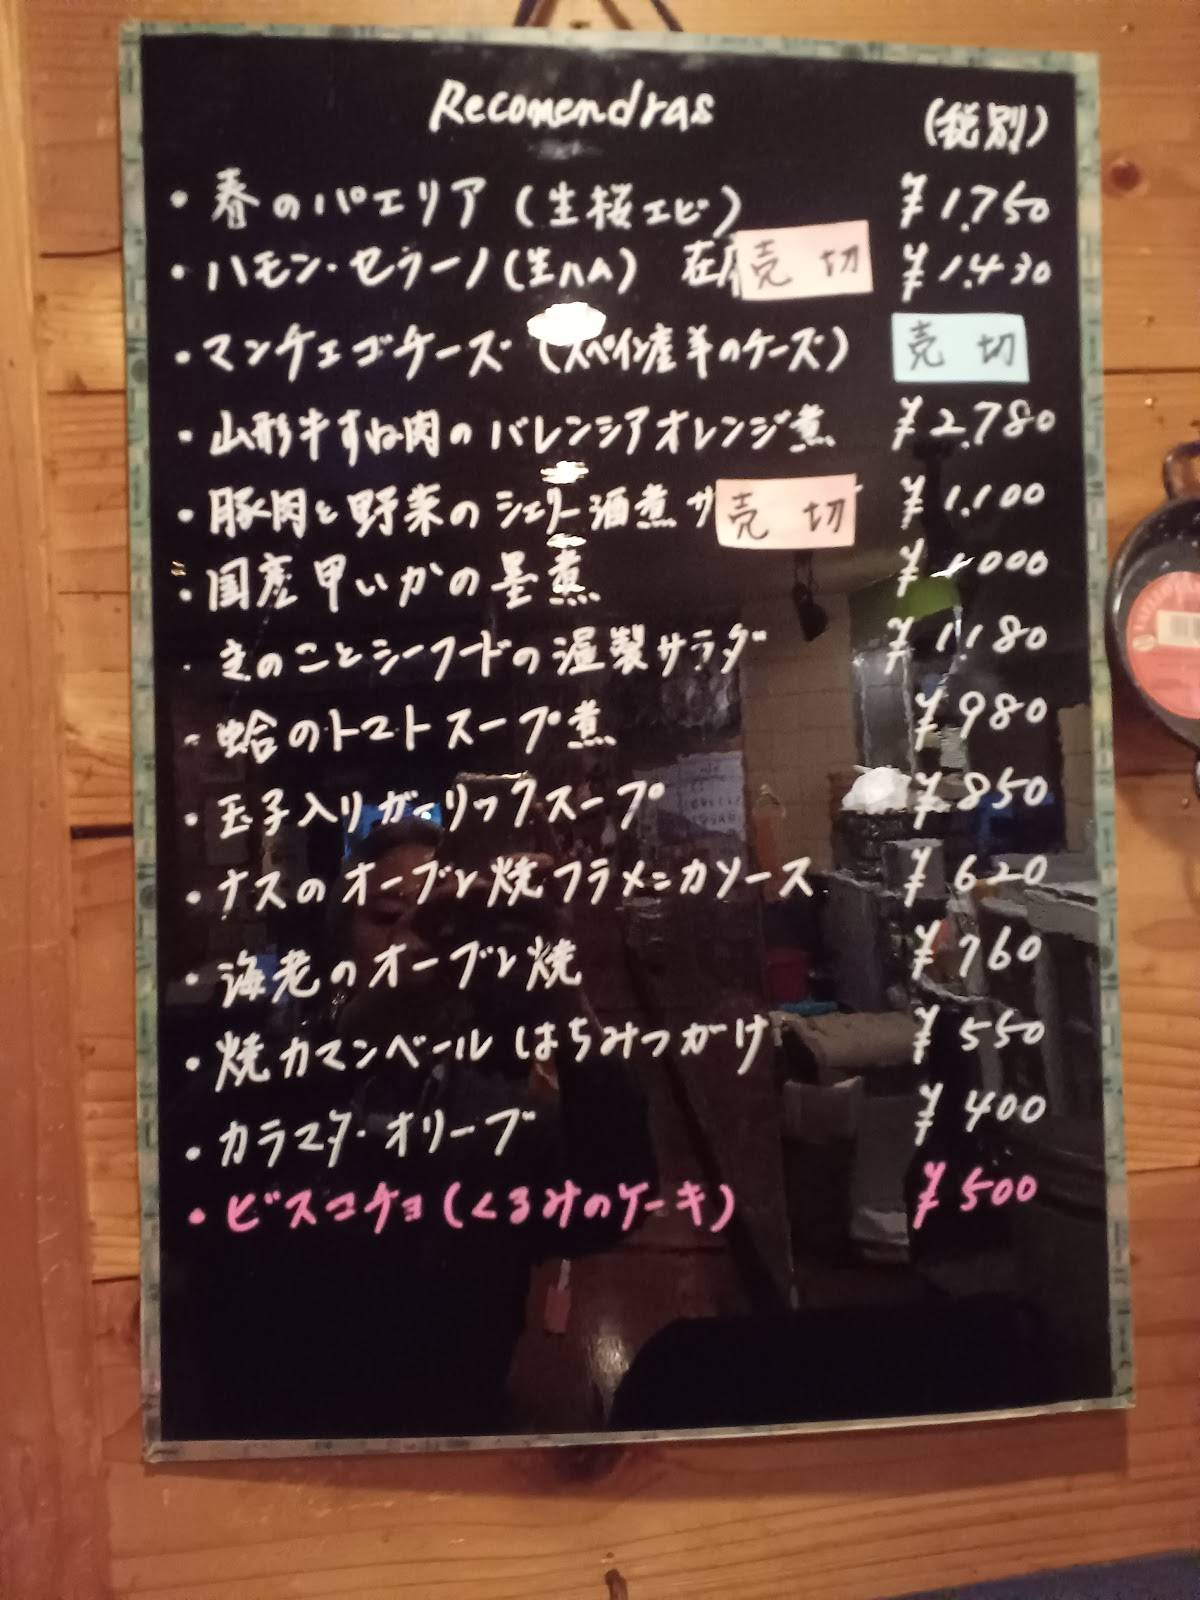 Recomendras (税別)
・春のパエリア(生桜エビ) ¥1,750
・ハモン・セラーノ(生ハム) 在 売切 ¥1,430
・マンチェゴチーズ(スペイン産羊のチーズ) 売切
・山形牛すね肉のバレンシアオレンジ煮 ¥2,780
・豚肉と野菜のシェリー酒煮 サ 売切 ¥1,100
・国産甲いかの墨煮 ¥1,000
・きのことシーフードの温製サラダ ¥1,180
・蛤のトマトスープ煮 ¥980
・玉子入りガーリックスープ ¥850
・ナスのオーブン焼フラメニカソース ¥620
・海老のオーブン焼 ¥760
・焼カマンベール はちみつがけ ¥550
・カラマタ・オリーブ ¥400
・ビスコチョ(くるみのケーキ) ¥500